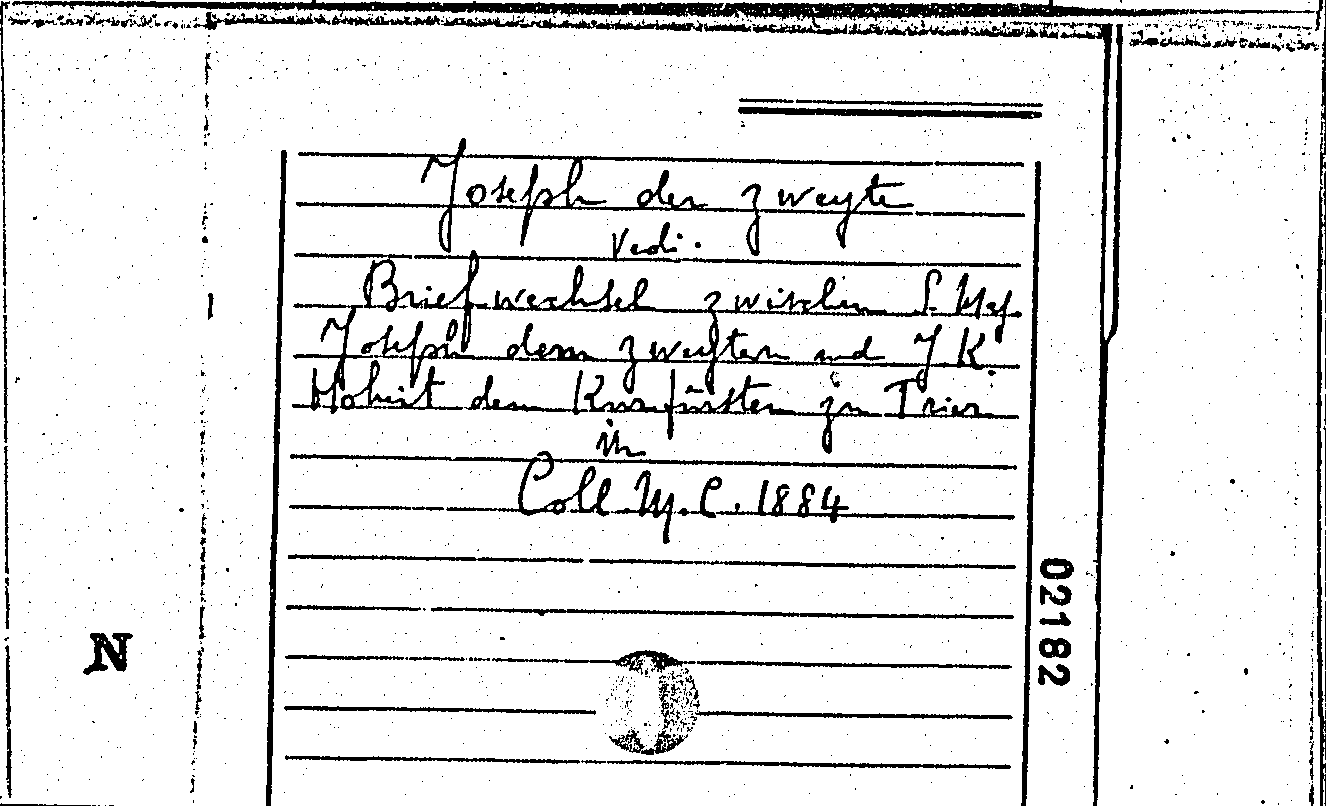 Joseph der zweyte
Vedi.
Briefwechsel zwischen S. Maj.
Joseph dem zweyten und J. K.
Hoheit dem Kurfürsten zu Trier
in
Coll. M. C. 1884
02182
N